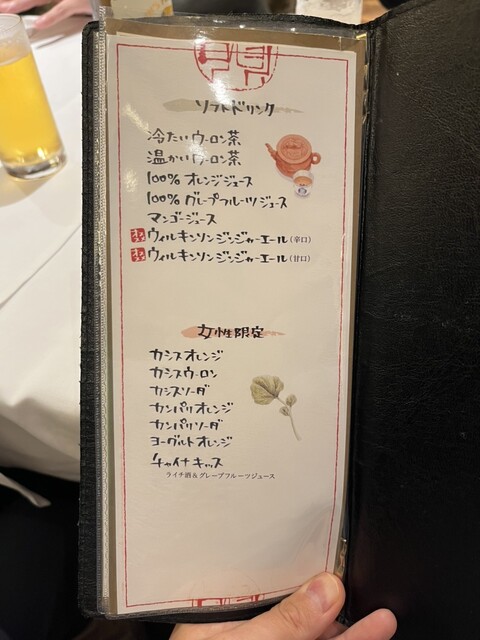 ソフトドリンク
冷たいウーロン茶
温かいウーロン茶
100% オレンジジュース
100% グレープフルーツジュース
マンゴージュース
ウィルキンソンジンジャーエール(辛口)
ウィルキンソンジンジャーエール(甘口)
女性限定
カシスオレンジ
カシスウーロン
カシスソーダ
カンパリオレンジ
カンパリソーダ
ヨーグルトオレンジ
チャイナキッス
ライチ酒&グレープフルーツジュース